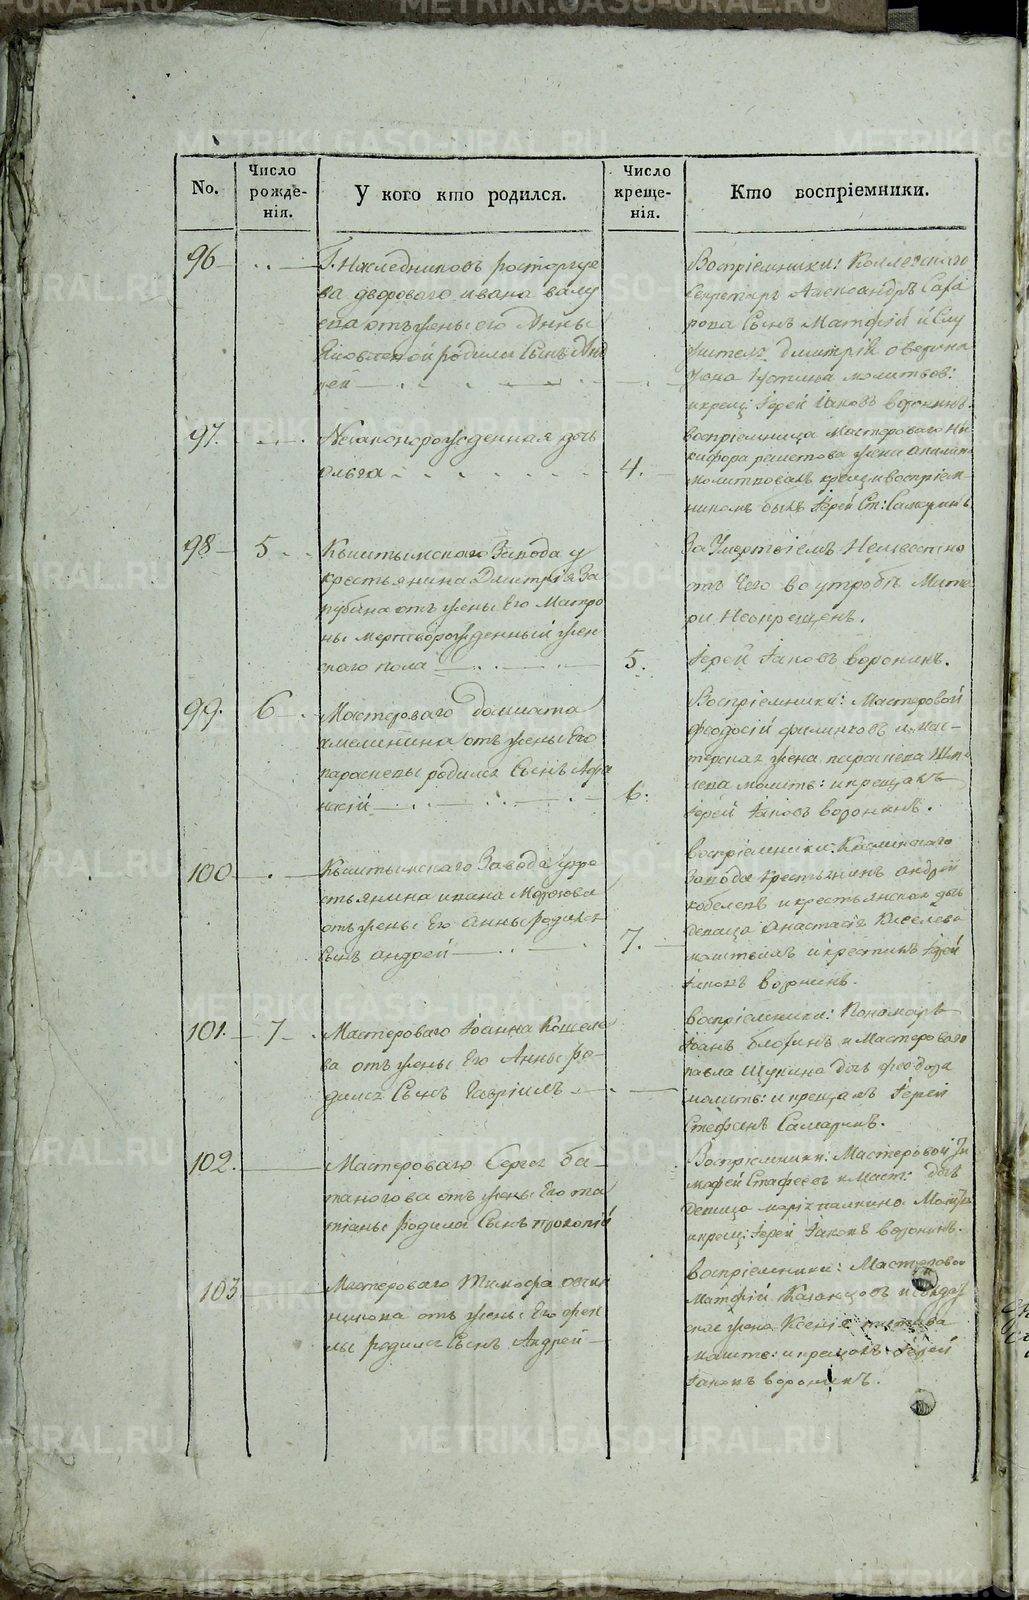 No.
Число рожденія.
У кого кто родился.
Число крещенія.
Кто воспріемники.
96 — ..
Г. Наследниковъ росторгуе
ва двороваго ивана валу
ева отъ жены его Анны
Яковлевой родился Сынъ Анд
рей
Воспріемники: Коллежскаго
Секретаря Александръ
Сынъ Матфій и Слу
жителя Дмитрія
жена Устинья молитвов:
и крещ: Іерей Іаковъ воронинъ.
97.
Незаконорожденная дочь
ольга
4.
воспріемница Мастероваго Ни
кифора решетова жена
молитвовалъ крестилъ и воспріем
никомъ былъ Іерей Ст: Самаринъ
98 — 5
Кыштымскаго Завода у
крестьянина Дмитрія За
рубина отъ жены Его Матро
ны мертворожденный жен
скаго пола
5.
За Умертвіемъ Неизвестно
отъ Чего во утробѣ Мате
ри Неокрещенъ.
Іерей Іаковъ воронинъ.
99. 6
Мастероваго домната
хмелинина отъ жены Его
парасковьи родился Сынъ Афа
насій
6.
Воспріемники: Мастеровой
феодосій филинковъ и Мас–
терская жена парасковья
молитв: и крещалъ
Іерей Іаковъ воронинъ.
100
Кыштымскаго Завода у кре
стьянина ивана Морозова
отъ жены Его Анны родился
Сынъ андрей
7.
воспріемники: Каслинскаго
Завода крестьянинъ андрей
кобелевъ и крестьянская дочь
девица Анастасія Киселева
молитвилъ и крестилъ Іерей
Іаковъ воронинъ.
101. 7
Мастероваго Іоанна Кошеле
ва отъ жены Его Анны ро–
дился Сынъ Гавріилъ
воспріемники: Пономарь
Іоанъ и Мастероваго
павла Щукина дочь феодора
молитв: и крещалъ Іерей
Стефанъ Самаринъ.
102.
Мастероваго Сергея ба–
таногова отъ жены Его та
тіаны родился Сынъ прокопій
Воспріемники: Мастеровой Ти
мофей Стафеевъ и Маст: дочь
девица марія палкина. Молитв:
и крещ: Іерей Іаковъ воронинъ.
103
Мастероваго Тимофа овчин
никова отъ жены Его фек
лы родился Сынъ Андрей
воспріемники: Мастеровой
Матфій Казанцовъ и Солдат
ская жена Ксенія
молитв: и крещалъ Іерей
Іаковъ воронинъ.
METRIKI.GASO-URAL.RU